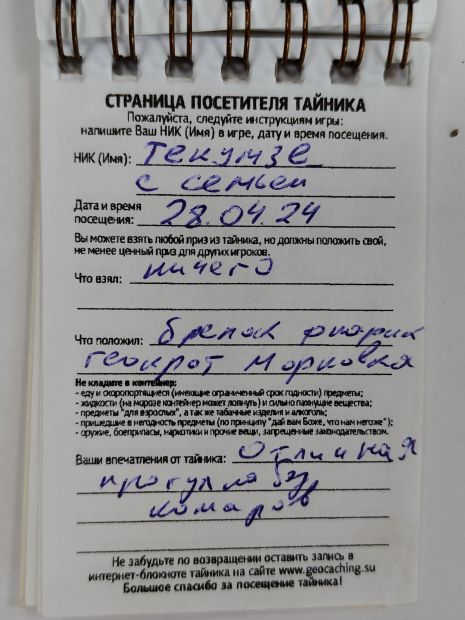 СТРАНИЦА ПОСЕТИТЕЛЯ ТАЙНИКА
Пожалуйста, следуйте инструкциям игры:
напишите Ваш НИК (Имя) в игре, дату и время посещения.
НИК (Имя): Текумзе
с семьей
Дата и время
посещения: 28.04.24
Вы можете взять любой приз из тайника, но должны положить свой,
не менее ценный приз для других игроков.
Что взял: ничего
Что положил: брелак фнарик
геокрот Морковка
Не кладите в контейнер:
- еду и скоропортящиеся (имеющие ограниченный срок годности) предметы;
- жидкости (на морозе контейнер может лопнуть) и сильно пахнущие вещества;
- предметы "для взрослых", а так же табачные изделия и алкоголь;
- пришедшие в негодность предметы (по принципу "дай вам Боже, что нам негоже");
- оружие, боеприпасы, наркотики и прочие вещи, запрещенные законодательством.
Ваши впечатления от тайника: Отличная
прогулка без
комаров
Не забудьте по возвращении оставить запись в
интернет-блокноте тайника на сайте www.geocaching.su
Большое спасибо за посещение тайника!